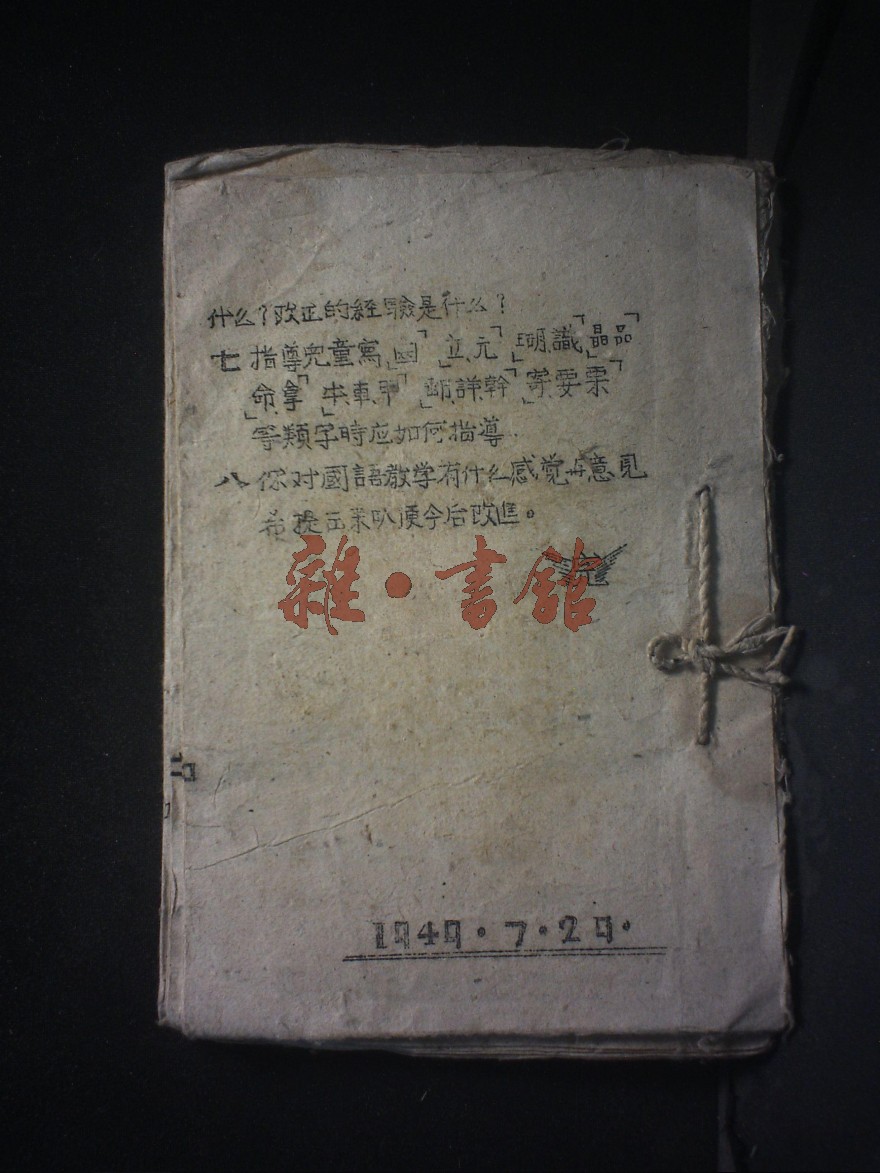 什么？改正的經驗是什么？
七 指導兒童寫「國」「立、元」「瑚、識」「晶品」
「命、拿」「牛、車、甲」「㕁、詳、幹」「寄、要、栗」
等類字時应如何指導
八 你对國語教学有什么感覚与意見
希提出来以便今后改進。
完
雜·書館
1949·7·29·